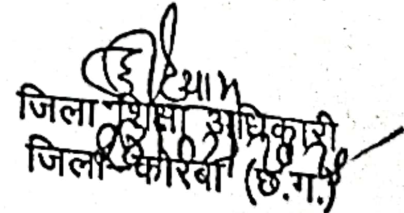 जिला शिक्षा अधिकारी
जिला-कोरबा (छ.ग.)